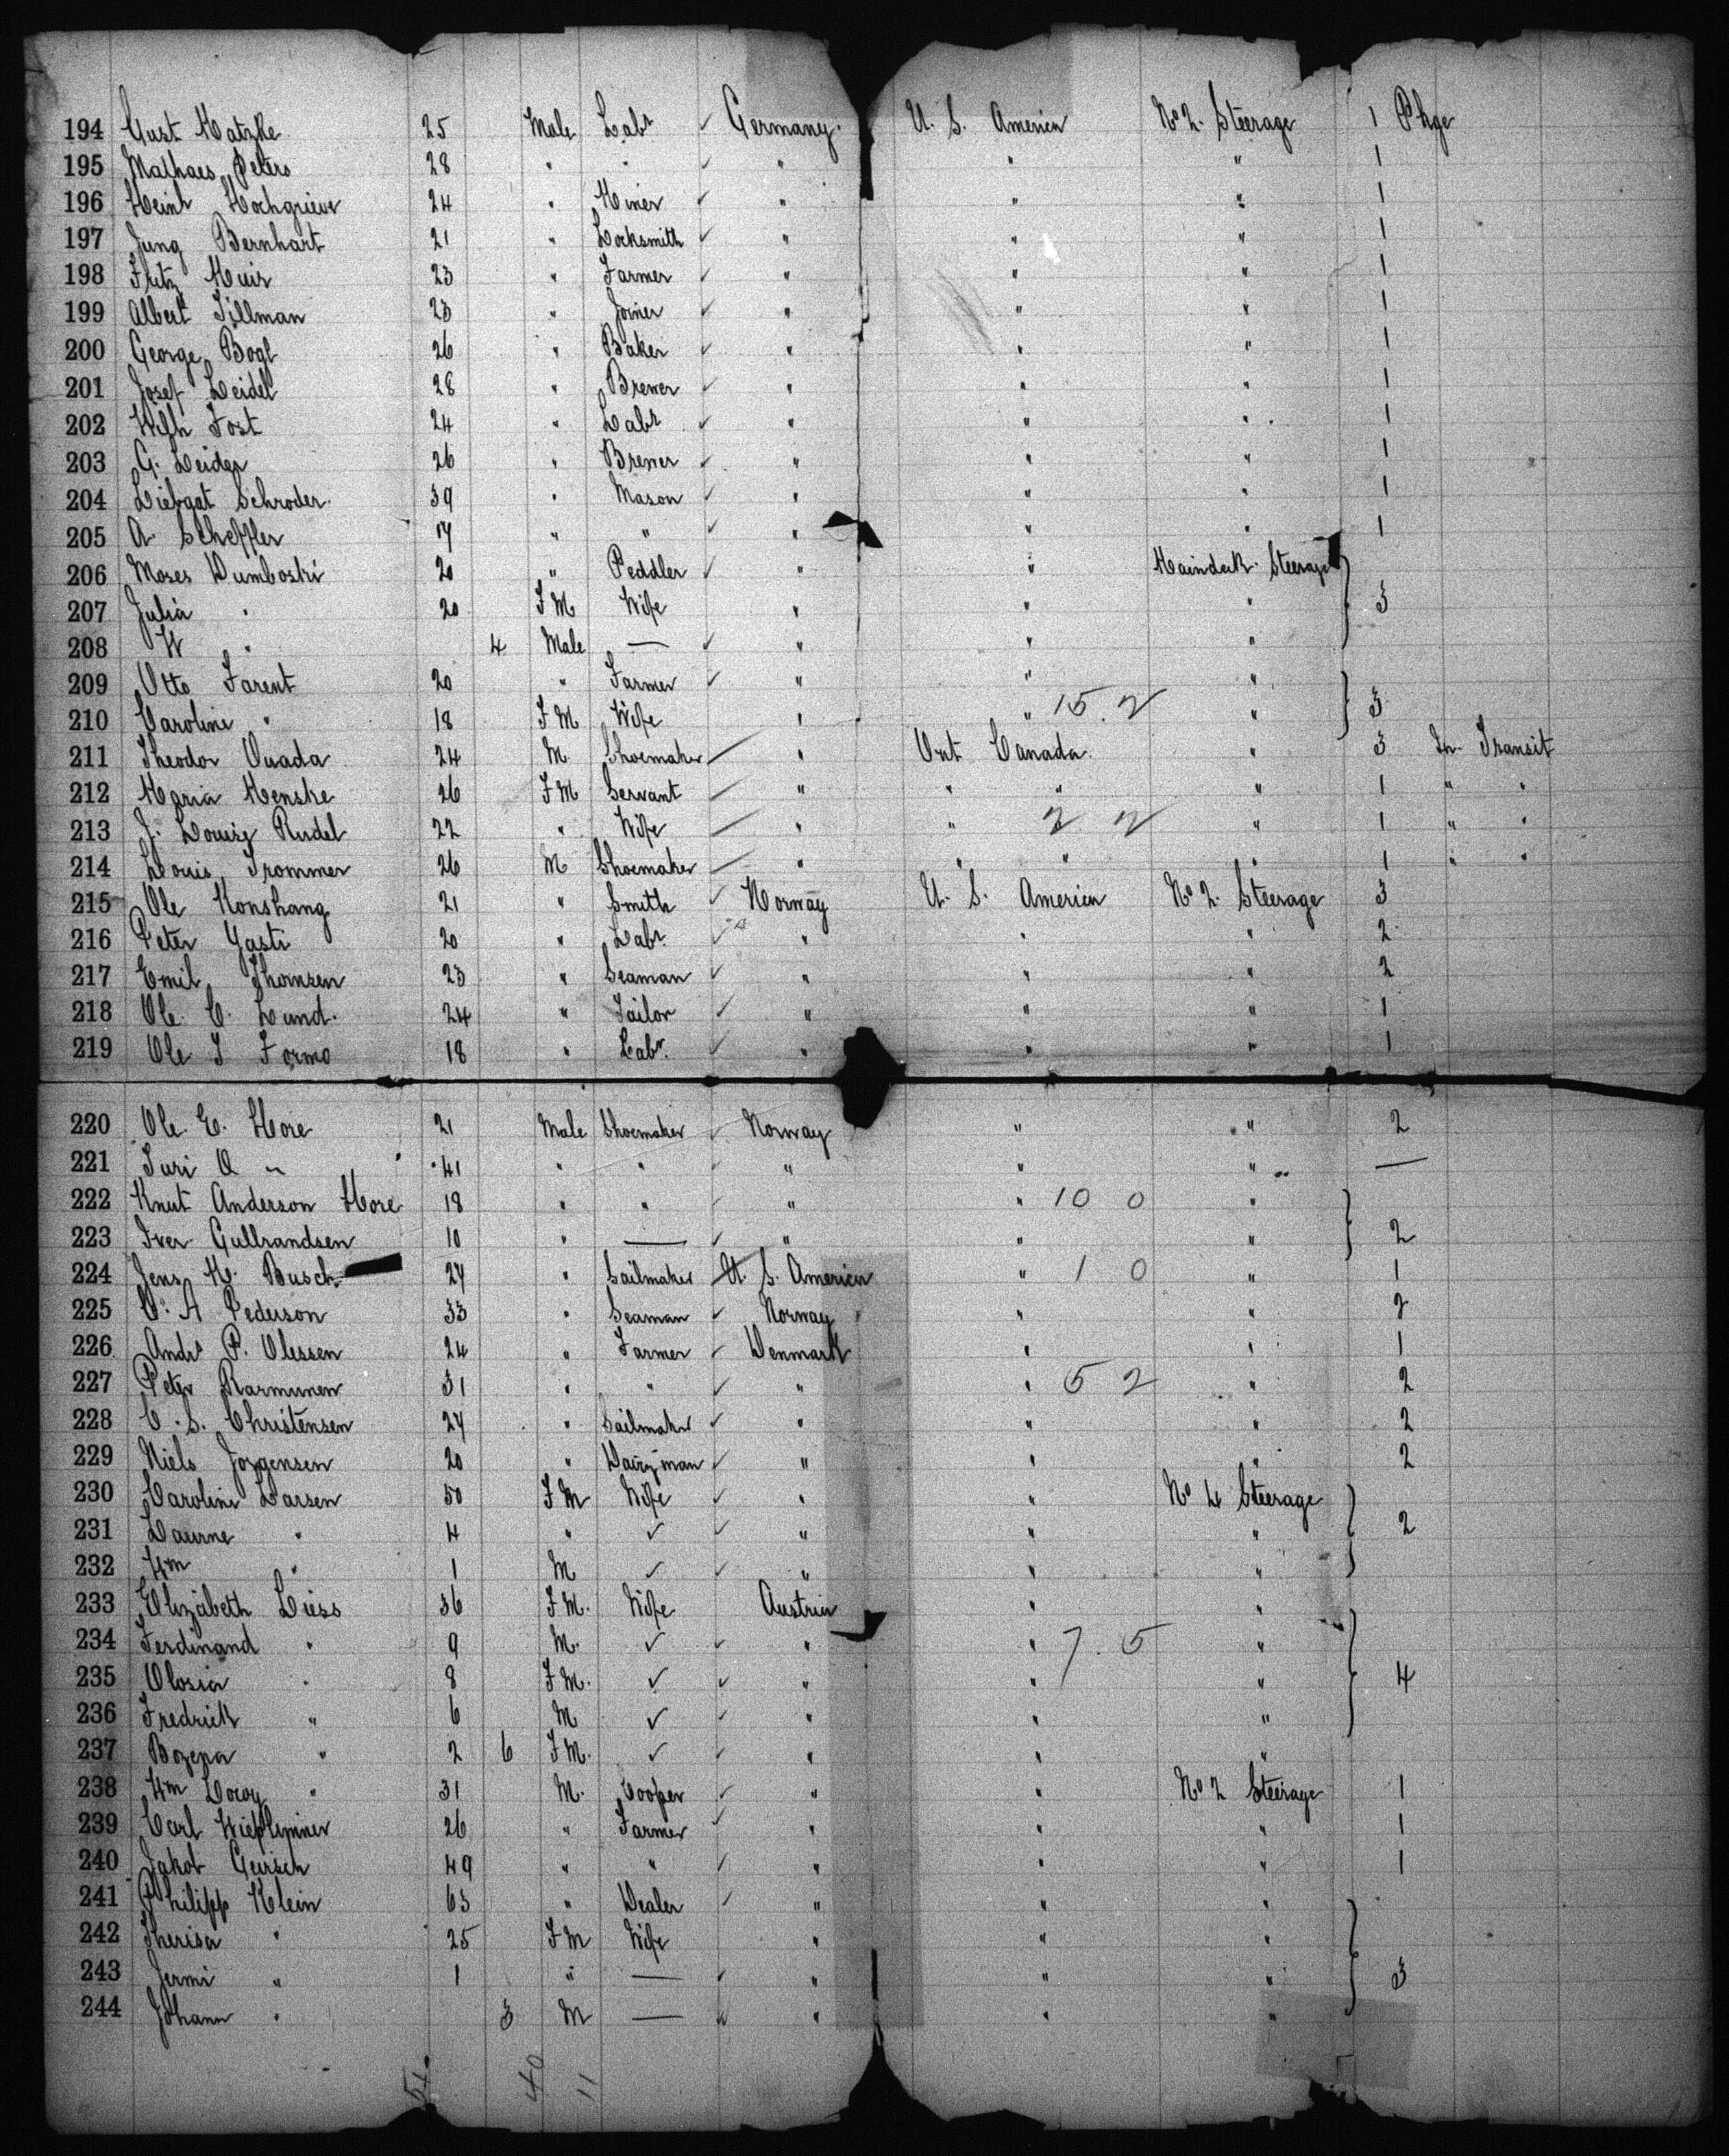 194 Gust Matzke 25 Male Labr ✓ Germany. U. S. America No 2. Steerage 1 Pkge
195 Mathaes Peters 28 " " ✓ " " " 1
196 Heinh Hochgrieve 24 " Miner ✓ " " " 1
197 Jung Bernhart 21 " Locksmith ✓ " " " 1
198 Fritz Muir 23 " Farmer ✓ " " " 1
199 Albert Tillman 23 " Joiner ✓ " " " 1
200 George Bogl 26 " Baker ✓ " " " 1
201 Josef Leidel 28 " Brewer ✓ " " " 1
202 Wilh Fost 24 " Labr ✓ " " " 1
203 G. Leider 26 " Brewer ✓ " " " 1
204 Liebgat Schroder 39 " Mason ✓ " " " 1
205 A. Scheffler 17 " " ✓ " " " 1
206 Moses Dumboski 20 " Peddler ✓ " " Maindeck Steerage
207 Julia " 20 F M Wife " " " 3
208 W " 4 Male — ✓ " " "
209 Otto Farent 20 " Farmer ✓ " " "
210 Caroline " 18 F M Wife " " 15. 2 " 3
211 Theodor Quada 24 M Shoemaker " Ont Canada. " 3 In Transit
212 Maria Henske 26 F M Servant " " " " 1 " "
213 J. Louise Rudel 22 " Wife " " 2 2 " 1 " "
214 Louis Trommer 26 M Shoemaker " " " " 1 " "
215 Ole Konshang 21 " Smith ✓ Norway U. S. America No 2. Steerage 3
216 Peter Gasti 20 " Labr. ✓ " " " 2
217 Emil Thomsen 23 " Seaman ✓ " " " 2
218 Ole. C. Lund. 24 " Tailor ✓ " " " 1
219 Ole T Formo 18 " Labr. ✓ " " " 1
220 Ole. E. Hore 21 Male Shoemaker ✓ Norway " " 2
221 Turi O " 41 " " ✓ " " " —
222 Knut Anderson Hore 18 " " ✓ " " 10 0 "
223 Iver Gullrandsen 10 " — ✓ " " " 2
224 Jens H. Busch 27 " Sailmaker U. S. America " 1 0 " 1
225 O. A Pederson 33 " Seaman ✓ Norway " " 2
226 Andrs P. Olessen 24 " Farmer ✓ Denmark " " 1
227 Peter Rasmunen 31 " " ✓ " " 5 2 " 2
228 C. S. Christensen 27 " Sailmaker ✓ " " " 2
229 Niels Jorgensen 20 " Dairyman ✓ " " " 2
230 Caroline Larsen 30 F M Wife ✓ " " No 4 Steerage
231 Laurne " 4 " ✓ ✓ " " " 2
232 Wm " 1 M ✓ ✓ " " "
233 Elizabeth Liess 36 F M. Wife Austria " "
234 Ferdinand " 9 M. ✓ ✓ " " 7. 5 "
235 Olosia " 8 F M. ✓ ✓ " " " 4
236 Fredrick " 6 M ✓ ✓ " " "
237 Bozena " 2 6 F M. ✓ ✓ " " "
238 Wm " 31 M. Cooper ✓ " " No 2 Steerage 1
239 Carl 26 " Farmer ✓ " " " 1
240 Jakob Gersch 49 " " ✓ " " " 1
241 Philipp Klein 63 " Dealer ✓ " " "
242 Therisa " 25 F M Wife " " "
243 Jermi " 1 " — ✓ " " " 3
244 Johann " 3 M — ✓ " " "
51. 40 11